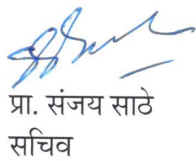 प्रा. संजय साठे
सचिव